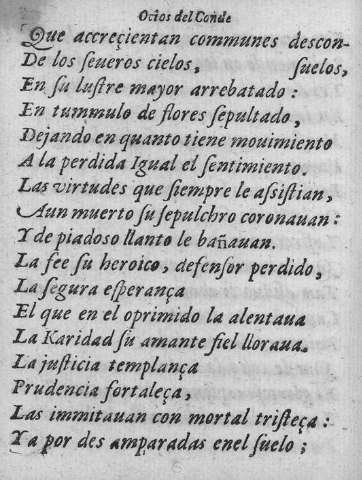 Ocios del Conde
Que accreçientan communes descon-
De los ſeueros cielos, ſuelos,
En ſu luſtre mayor arrebatado :
En tummulo de flores ſepultado,
Dejando en quanto tiene mouimiento
A la perdida Igual el ſentimiento.
Las virtudes que ſiempre le aſsiſtian,
Aun muerto ſu ſepulchro coronauan :
Y de piadoso llanto le bañauan.
La fee ſu heroico, defenſor perdido,
La ſegura eſperança
El que en el oprimido la alentaua
La Karidad ſu amante fiel lloraua.
La juſticia templança
Prudencia fortaleça,
Las immitauan con mortal triſteça :
Ya por des amparadas enel ſuelo ;